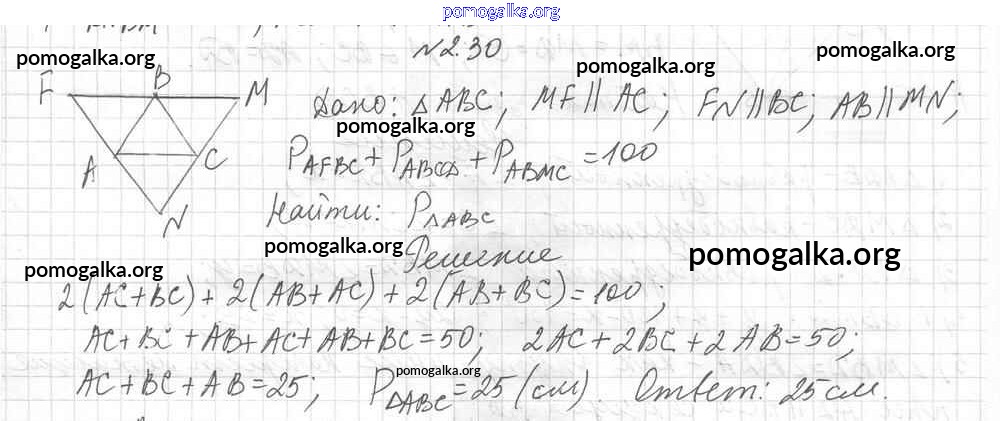 pomogalka.org
N 2.30
pomogalka.org pomogalka.org pomogalka.org
F B M
A C
N
Дано: △ABC; MF || AC; FN || BC; AB || MN;
pomogalka.org
P AFBC + P ABC + P ABMC = 100
Найти: P △ABC
pomogalka.org pomogalka.org
Решение
pomogalka.org
2(AC+BC) + 2(AB+AC) + 2(AB+BC) = 100;
AC+BC+AB+AC+AB+BC=50; 2AC+2BC+2AB=50;
pomogalka.org
AC+BC+AB=25; P △ABC = 25 (см). Ответ: 25 см.